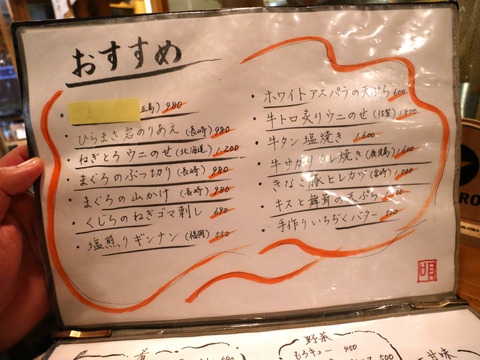 おすすめ
五島) 980
ひらまさ岩のりあえ (長崎) 980
ねぎとろウニのせ (北海道) 1,200
まぐろのぶつ切り (長崎) 980
まぐろの山かけ (長崎) 980
くじらのねぎゴマ刺し 690
塩煎りギンナン (福岡) 550
ホワイトアスパラの天ぷら 600
牛トロ炙りウニのせ (佐賀) 1,800
牛タン塩焼き 1,600
牛サガリ 焼き (鹿児島) 1,600
きなこ豚ヒレカツ (宮崎) 1,000
キスと舞茸の天ぷら
手作りいちぢくバター 500
唄
煮
野菜
もろキュー 450